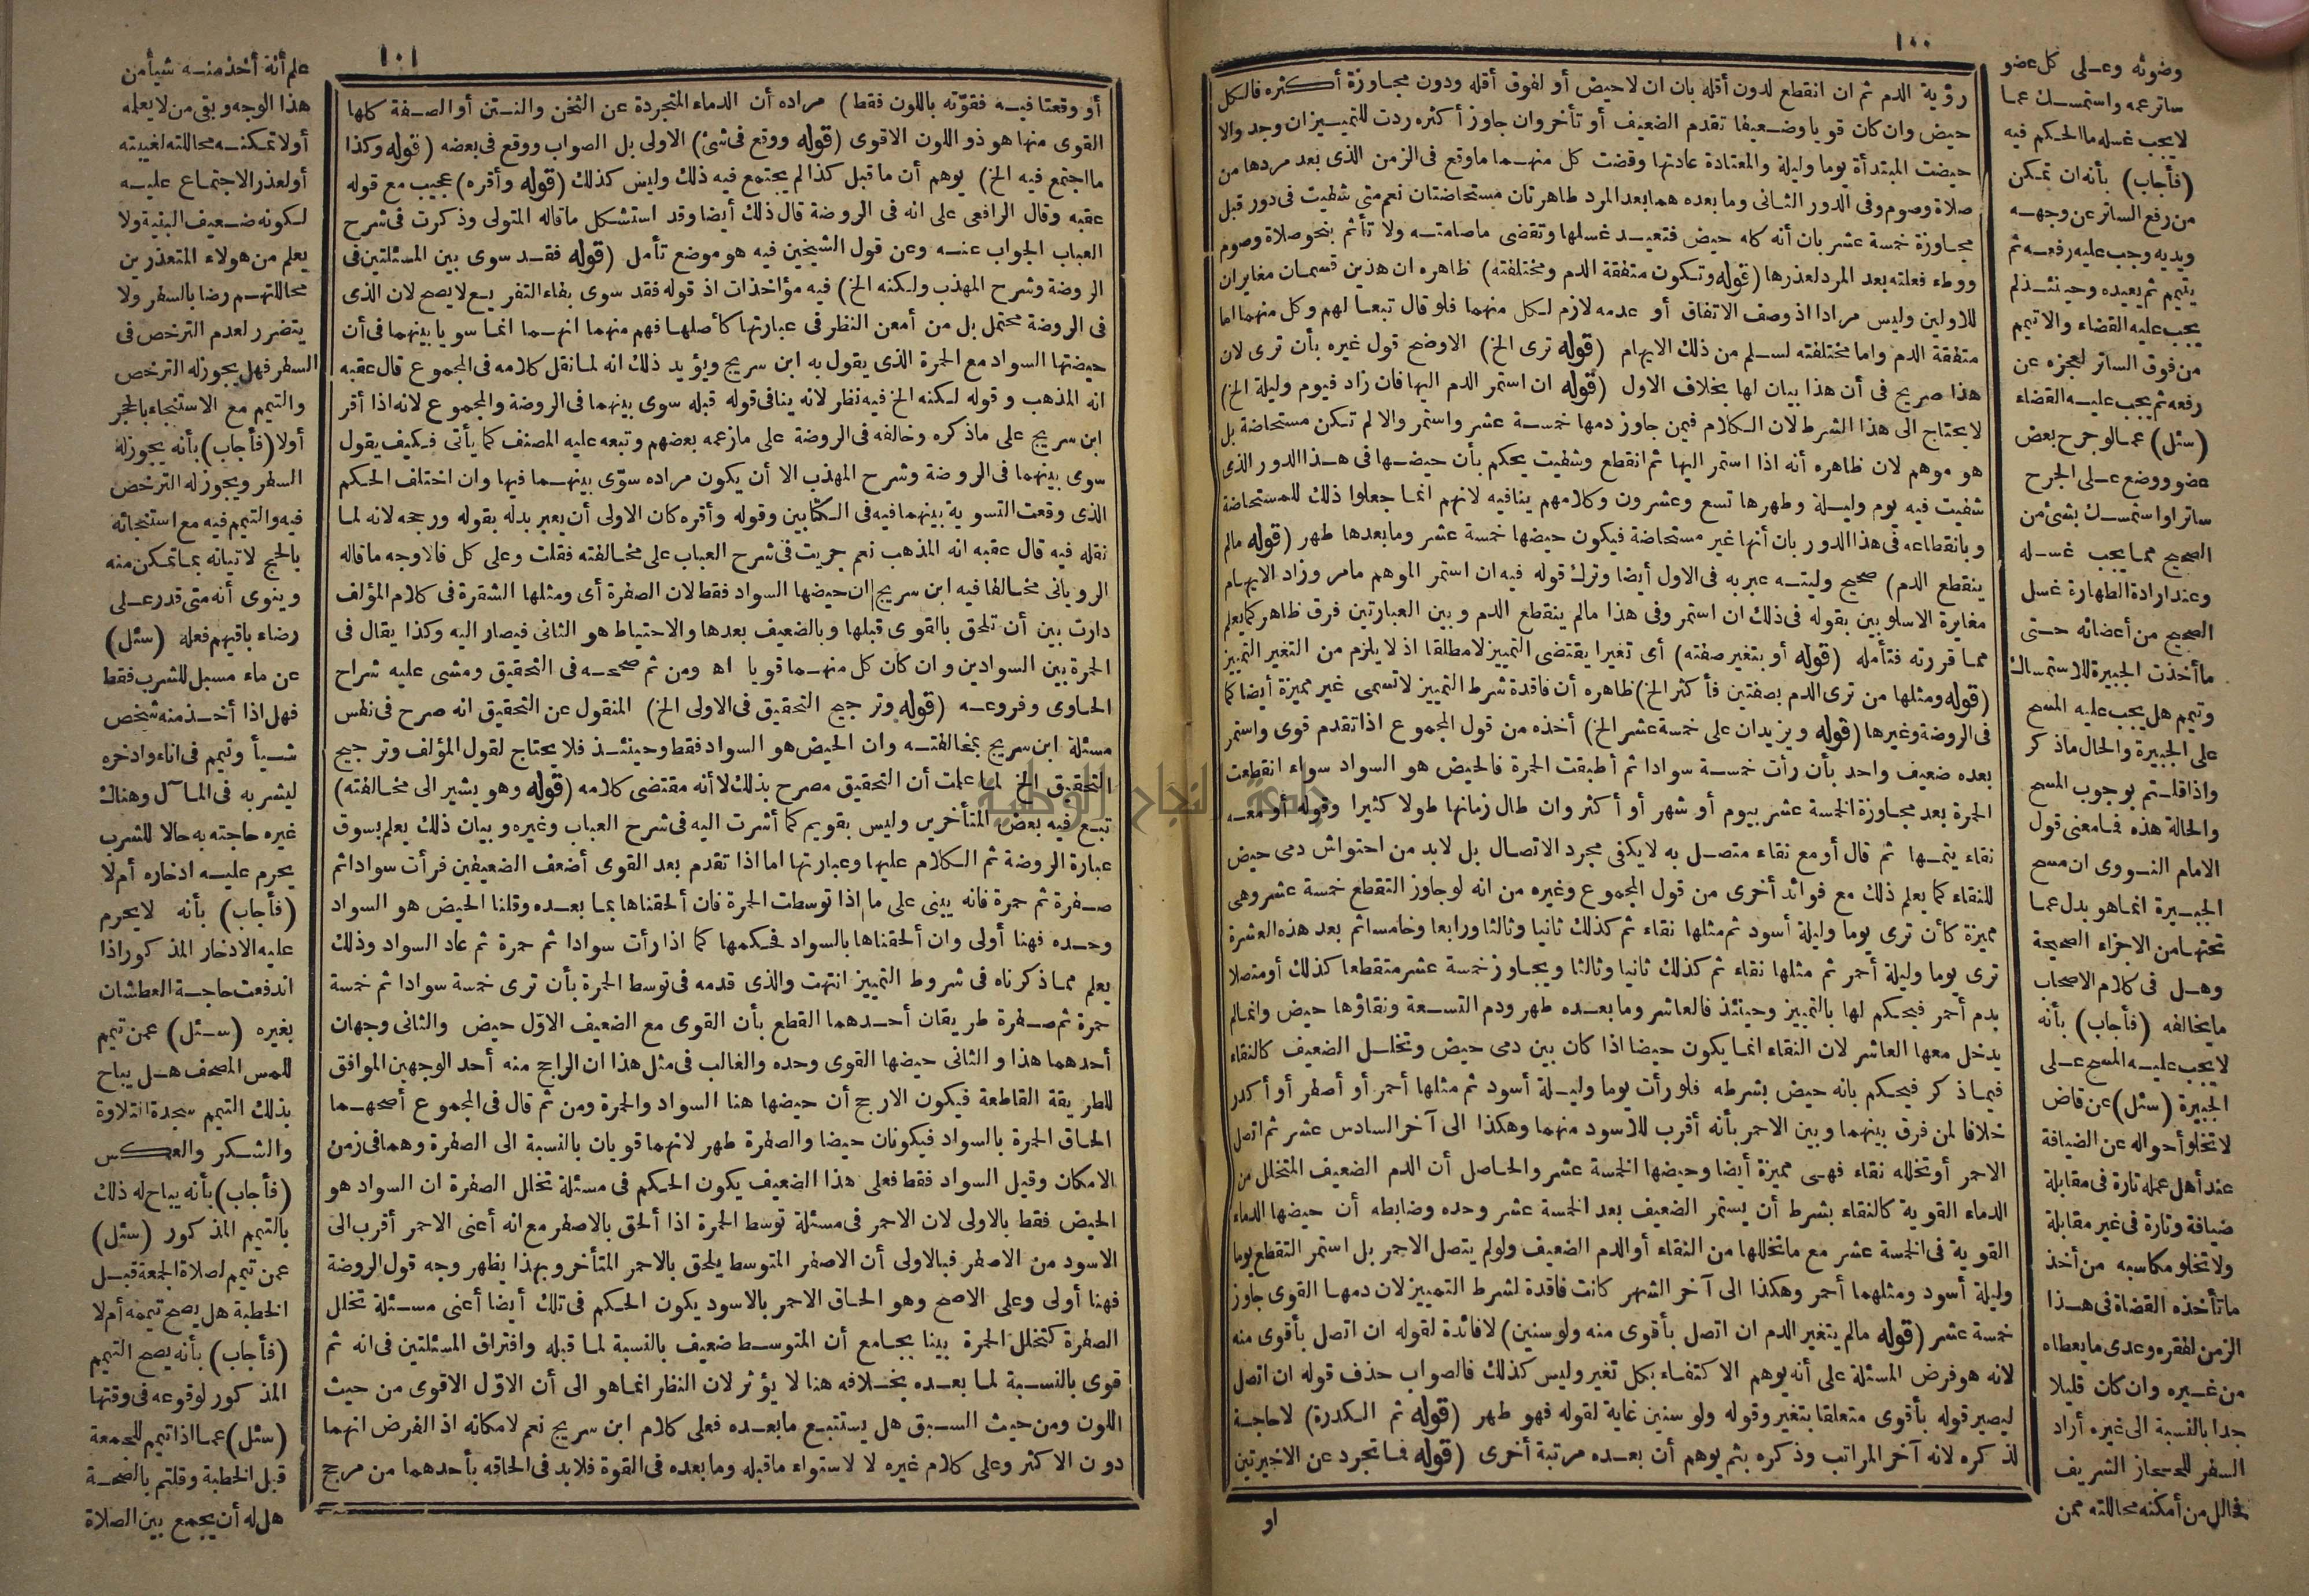 ١٠٠
رؤية الدم ثم ان انقطع لدون أقله بان ان لا حيض أو لفوق أقله ودون مجاوزة أكثره فالكل
حيض وان كان قويا وضعيفا تقدم الضعيف أو تأخر وان جاوز أكثره ردت للتمييز ان وجد والا
حيضت المبتدأة يوما وليلة والمعتادة عادتها وقضت كل منهما ما وقع فى الزمن الذى بعد مردها من
صلاة وصوم وفى الدور الثانى وما بعده هما بعد المرد طاهرتان مستحاضتان نعم متى شفيت فى دور قبل
مجاوزة خمسة عشر بان أنه كله حيض فتعيد غسلها وتقضى ما صامته ولا تأثم بنحو صلاة وصوم
ووطء فعلته بعد المرد لعذرها (قوله وتكون متفقة الدم ومختلفته) ظاهره ان هذين قسمان مغايران
للاولين وليس مرادا اذ وصف الاتفاق أو عدمه لازم لكل منهما فلو قال تبعا لهم وكل منهما اما
متفقة الدم واما مختلفته لسلم من ذلك الايهام (قوله ترى الخ) الاوضح قول غيره بأن ترى لان
هذا صريح فى أن هذا بيان لها بخلاف الاول (قوله ان استمر الدم اليها فان زاد فيوم وليلة الخ)
لا يحتاج الى هذا الشرط لان الكلام فيمن جاوز دمها خمسة عشر واستمر والا لم تكن مستحاضة بل
هو موهم لان ظاهره أنه اذا استمر اليها ثم انقطع وشفيت يحكم بأن حيضها فى هذا الدور الذى
شفيت فيه يوم وليلة وطهرها تسع وعشرون وكلامهم ينافيه لانهم انما جعلوا ذلك للمستحاضة
وبانقطاعه فى هذا الدور بان أنها غير مستحاضة فيكون حيضها خمسة عشر وما بعدها طهر (قوله مالم
ينقطع الدم) صحيح وليته عبر به فى الاول أيضا وترك قوله فيه ان استمر الموهم مامر وزاد الايهام
مغايرة الاسلوبين بقوله فى ذلك ان استمر وفى هذا مالم ينقطع الدم وبين العبارتين فرق ظاهر كما يعلم
مما قررته فتأمله (قوله أو بتغير صفته) أى تغيرا يقتضى التمييز لا مطلقا اذ لا يلزم من التغير التمييز
(قوله ومثلها من ترى الدم بصفتين فأكثر الخ) ظاهره أن فاقدة شرط التمييز لا تسمى غير مميزة أيضا كما
فى الروضة وغيرها (قوله ويزيدان على خمسة عشر الخ) أخذه من قول المجموع اذا تقدم قوى واستمر
بعده ضعيف واحد بأن رأت خمسة سوادا ثم أطبقت الحمرة فالحيض هو السواد سواء انقطعت
الحمرة بعد مجاوزة الخمسة عشر بيوم أو شهر أو أكثر وان طال زمانها طولا كثيرا وقوله أو معه
نقاء يتمها ثم قال أو مع نقاء متصل به لا يكفى مجرد الاتصال بل لابد من احتواش دمى حيض
للنقاء كما يعلم ذلك مع فوائد أخرى من قول المجموع وغيره من انه لو جاوز التقطع خمسة عشر وهى
مميزة كأن ترى يوما وليلة أسود ثم مثلها نقاء ثم كذلك ثانيا وثالثا ورابعا وخامسا ثم بعد هذه العشرة
ترى يوما وليلة أحمر ثم مثلها نقاء ثم كذلك ثانيا وثالثا ويجاوز خمسة عشر متقطعا كذلك أو متصلا
بدم أحمر فيحكم لها بالتمييز وحينئذ فالعاشر وما بعده طهر ودم التسعة ونقاؤها حيض وانما لم
يدخل معها العاشر لان النقاء انما يكون حيضا اذا كان بين دمى حيض وتخلل الضعيف كالنقاء
فيما ذكر فيحكم بانه حيض بشرطه فلو رأت يوما وليلة أسود ثم مثلها أحمر أو أصفر أو أكدر
خلافا لمن فرق بينهما وبين الاحمر بأنه أقرب للاسود منهما وهكذا الى آخر السادس عشر ثم اتصل
الاحمر أو تخلله نقاء فهى مميزة أيضا وحيضها الخمسة عشر والحاصل أن الدم الضعيف المتخلل من
الدماء القوية كالنقاء بشرط أن يستمر الضعيف بعد الخمسة عشر وحده وضابطه أن حيضها الدماء
القوية فى الخمسة عشر مع ما تخللها من النقاء أو الدم الضعيف ولو لم يتصل الاحمر بل استمر التقطع يوما
وليلة أسود ومثلهما أحمر وهكذا الى آخر الشهر كانت فاقدة لشرط التمييز لان دمها القوى جاوز
خمسة عشر (قوله مالم يتغير الدم ان اتصل بأقوى منه ولو سنين) لا فائدة لقوله ان اتصل بأقوى منه
لانه هو فرض المسئلة على أنه يوهم الاكتفاء بكل تغير وليس كذلك فالصواب حذف قوله ان اتصل
ليصير قوله بأقوى متعلقا بتغير وقوله ولو سنين غاية لقوله فهو طهر (قوله ثم الكدرة) لا حاجة
لذكره لانه آخر المراتب وذكره بثم يوهم أن بعده مرتبة أخرى (قوله فما تجرد عن الاخيرتين
او
وضوئه وعلى كل عضو
ساتر عمه واستمسك عما
لا يجب غسله ما الحكم فيه
(فأجاب) بأنه ان تمكن
من رفع الساتر عن وجهه
ويديه وجب عليه رفعه ثم
يتيمم ثم يعيده وحينئذ لم
يجب عليه القضاء والا تيمم
من فوق الساتر لعجزه عن
رفعه ثم يجب عليه القضاء
(سئل) عما لو جرح بعض
عضو ووضع على الجرح
ساترا واستمسك بشئ من
الصحيح مما يجب غسله
وعند ارادة الطهارة غسل
الصحيح من أعضائه حتى
ما أخذت الجبيرة للاستمساك
وتيمم هل يجب عليه المسح
على الجبيرة والحال ما ذكر
واذا قلتم بوجوب المسح
والحالة هذه فما معنى قول
الامام النووى ان مسح
الجبيرة انما هو بدل عما
تحتها من الاجزاء الصحيحة
وهل فى كلام الاصحاب
ما يخالفه (فأجاب) بأنه
لا يجب عليه المسح على
الجبيرة (سئل) عن قاض
لا تخلو أحواله عن الضيافة
عند أهل عمله تارة فى مقابلة
ضيافة وتارة فى غير مقابلة
ولا تخلو مكاسبه من أخذ
ما تأخذه القضاة فى هذا
الزمن لفقره وعدى ما يعطاه
من غيره وان كان قليلا
جدا بالنسبة الى غيره أراد
السفر للحجاز الشريف
فحالل من أمكنه محاللته ممن
١٠١
أو وقعتا فيه فقوته باللون فقط) مراده أن الدماء المتجردة عن الثخن والنتن أو الصفة كلها
القوى منها هو ذو اللون الاقوى (قوله ووقع فى شئ) الاولى بل الصواب ووقع فى بعضه (قوله وكذا
ما اجتمع فيه الخ) يوهم أن ما قبل كذا لم يجتمع فيه ذلك وليس كذلك (قوله وأقره) عجيب مع قوله
عقبه وقال الرافعى على انه فى الروضة قال ذلك أيضا وقد استشكل ما قاله المتولى وذكرت فى شرح
العباب الجواب عنه وعن قول الشيخين فيه هو موضع تأمل (قوله فقد سوى بين المسئلتين فى
الروضة وشرح المهذب ولكنه الخ) فيه مؤاخذات اذ قوله فقد سوى بفاء التفريع لا يصح لان الذى
فى الروضة محتمل بل من أمعن النظر فى عبارتها كأصلها فهم منهما انهما انما سويا بينهما فى أن
حيضتها السواد مع الحمرة الذى يقول به ابن سريج ويؤيد ذلك انه لما نقل كلامه فى المجموع قال عقبه
انه المذهب وقوله لكنه الخ فيه نظر لانه ينافى قوله قبله سوى بينهما فى الروضة والمجموع لانه اذا أقر
ابن سريج على ما ذكره وخالفه فى الروضة على ما زعمه بعضهم وتبعه عليه المصنف كما يأتى فكيف يقول
سوى بينهما فى الروضة وشرح المهذب الا أن يكون مراده سوّى بينهما فيها وان اختلف الحكم
الذى وقعت التسوية بينهما فيه فى الكتابين وقوله وأقره كان الاولى أن يعبر بدله بقوله ورجحه لانه لما
نقله فيه قال عقبه انه المذهب نعم جريت فى شرح العباب على مخالفته فقلت وعلى كل فالاوجه ما قاله
الرويانى مخالفا فيه ابن سريج ان حيضها السواد فقط لان الصفرة أى ومثلها الشقرة فى كلام المؤلف
دارت بين أن تلحق بالقوى قبلها وبالضعيف بعدها والاحتياط هو الثانى فيصار اليه وكذا يقال فى
الحمرة بين السوادين وان كان كل منهما قويا اه ومن ثم صححه فى التحقيق ومشى عليه شراح
الحاوى وفروعه (قوله وترجيح التحقيق فى الاولى الخ) المنقول عن التحقيق انه صرح فى نفس
مسئلة ابن سريج بمخالفته وان الحيض هو السواد فقط وحينئذ فلا يحتاج لقول المؤلف وترجيح
التحقيق الخ لما علمت أن التحقيق مصرح بذلك لا أنه مقتضى كلامه (قوله وهو يشير الى مخالفته)
تبع فيه بعض المتأخرين وليس بقويم كما أشرت اليه فى شرح العباب وغيره وبيان ذلك يعلم بسوق
عبارة الروضة ثم الكلام عليها وعبارتها اما اذا تقدم بعد القوى أضعف الضعيفين فرأت سوادا ثم
صفرة ثم حمرة فانه يبنى على ما اذا توسطت الحمرة فان ألحقناها بما بعده وقلنا الحيض هو السواد
وحده فهنا أولى وان ألحقناها بالسواد فحكمها كما اذا رأت سوادا ثم حمرة ثم عاد السواد وذلك
يعلم مما ذكرناه فى شروط التمييز انتهت والذى قدمه فى توسط الحمرة بأن ترى خمسة سوادا ثم خمسة
حمرة ثم صفرة طريقان أحدهما القطع بأن القوى مع الضعيف الاوّل حيض والثانى وجهان
أحدهما هذا والثانى حيضها القوى وحده والغالب فى مثل هذا ان الراجح منه أحد الوجهين الموافق
للطريقة القاطعة فيكون الارجح أن حيضها هنا السواد والحمرة ومن ثم قال فى المجموع أصحهما
الحاق الحمرة بالسواد فيكونان حيضا والصفرة طهر لانهما قويان بالنسبة الى الصفرة وهما فى زمن
الامكان وقيل السواد فقط فعلى هذا الضعيف يكون الحكم فى مسئلة تخلل الصفرة ان السواد هو
الحيض فقط بالاولى لان الاحمر فى مسئلة توسط الحمرة اذا ألحق بالاصفر مع انه أعنى الاحمر أقرب الى
الاسود من الاصفر فبالاولى أن الاصفر المتوسط يلحق بالاحمر المتأخر وبهذا يظهر وجه قول الروضة
فهنا أولى وعلى الاصح وهو الحاق الاحمر بالاسود يكون الحكم فى تلك أيضا أعنى مسئلة تخلل
الصفرة كتخلل الحمرة بينا بجامع أن المتوسط ضعيف بالنسبة لما قبله وافتراق المسئلتين فى انه ثم
قوى بالنسبة لما بعده بخلافه هنا لا يؤثر لان النظر انما هو الى أن الاوّل الاقوى من حيث
اللون ومن حيث السبق هل يستتبع ما بعده فعلى كلام ابن سريج نعم لامكانه اذ الفرض انهما
دون الاكثر وعلى كلام غيره لا لاستواء ما قبله وما بعده فى القوة فلابد فى الحاقه بأحدهما من مرجح
علم أنه أخذ منه شيأ من
هذا الوجه وبقى من لا يعلمه
أولا تمكنه محاللته لغيبته
أو لعذر الاجتماع عليه
لكونه ضعيف البنية ولا
يعلم من هؤلاء المتعذرين
محاللتهم رضا بالسفر ولا
يتضرر لعدم الترخص فى
السفر فهل يجوز له الترخص
والتيمم مع الاستنجاء بالحجر
أولا (فأجاب) بأنه يجوز له
السفر ويجوز له الترخص
فيه والتيمم فيه مع استنجائه
بالحجر لاتيانه بما تمكن منه
وينوى أنه متى قدر على
رضاء باقيهم فعله (سئل)
عن ماء مسبل للشرب فقط
فهل اذا أخذ منه شخص
شيأ وتيمم فى اناء وادخره
ليشربه فى المآل وهناك
غيره حاجته به حالا للشرب
يحرم عليه ادخاره أم لا
(فأجاب) بأنه لا يحرم
عليه الادخار المذكور اذا
اندفعت حاجة العطشان
بغيره (سئل) عمن تيمم
للمس المصحف هل يباح
بذلك التيمم سجدة التلاوة
والشكر والعكس
(فأجاب) بأنه يباح له ذلك
بالتيمم المذكور (سئل)
عمن تيمم لصلاة الجمعة قبل
الخطبة هل يصح تيممه أم لا
(فأجاب) بأنه يصح التيمم
المذكور لوقوعه فى وقتها
(سئل) عما اذا تيمم للجمعة
قبل الخطبة وقلتم بالصحة
هل له أن يجمع بين الصلاة
جامعة النجاح الوطنية